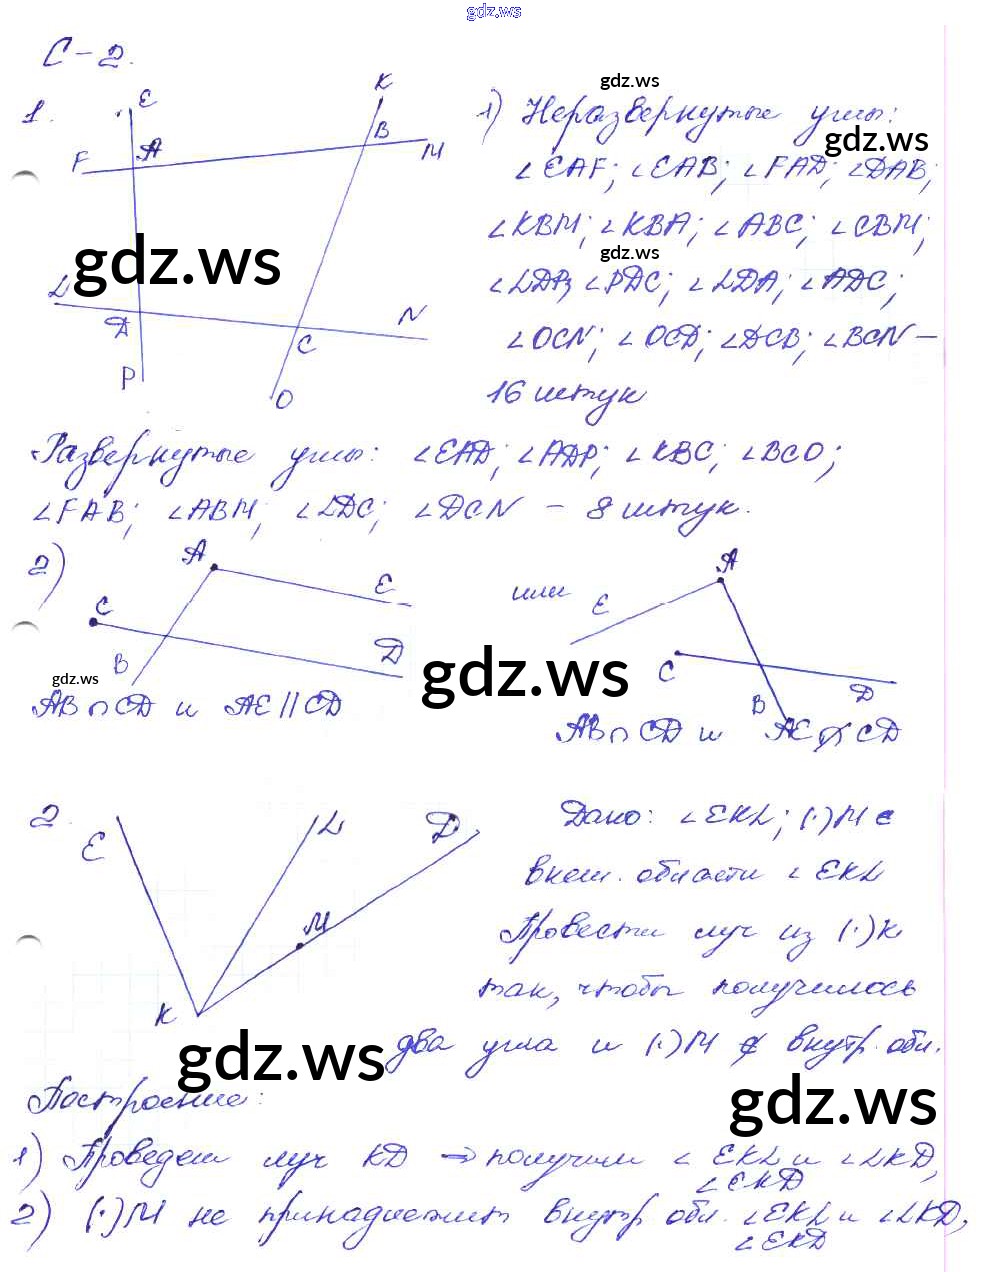 gdz.ws
С-2.
gdz.ws
1.
E
K
B
F
A
M
L
D
N
C
P
O
1) Неразвернутые углы:
gdz.ws
∠EAF; ∠EAB; ∠FAD; ∠DAB;
∠KBM; ∠KBA; ∠ABC; ∠CBM;
gdz.ws
gdz.ws
∠LDP; ∠PDC; ∠LDA; ∠ADC;
∠OCN; ∠OCD; ∠DCB; ∠BCN —
16 штук
Развернутые углы: ∠EAD; ∠ADP; ∠KBC; ∠BCO;
∠FAB; ∠ABM; ∠LDC; ∠DCN — 8 штук.
2)
A
E
C
B
D
или
A
E
C
B
D
gdz.ws
gdz.ws
AB ∩ CD и AE || CD
AB ∩ CD и AE ∦ CD
2.
E
L
D
M
K
Дано: ∠EKL; (·)M ∈
внеш. области ∠EKL
Провести луч из (·)K
так, чтобы получилось
gdz.ws
два угла и (·)M ∉ внутр. обл.
gdz.ws
Построение:
1) Проведем луч KD → получим ∠EKL и ∠LKD,
∠EKD
2) (·)M не принадлежит внутр обл. ∠EKL и ∠LKD,
∠EKD